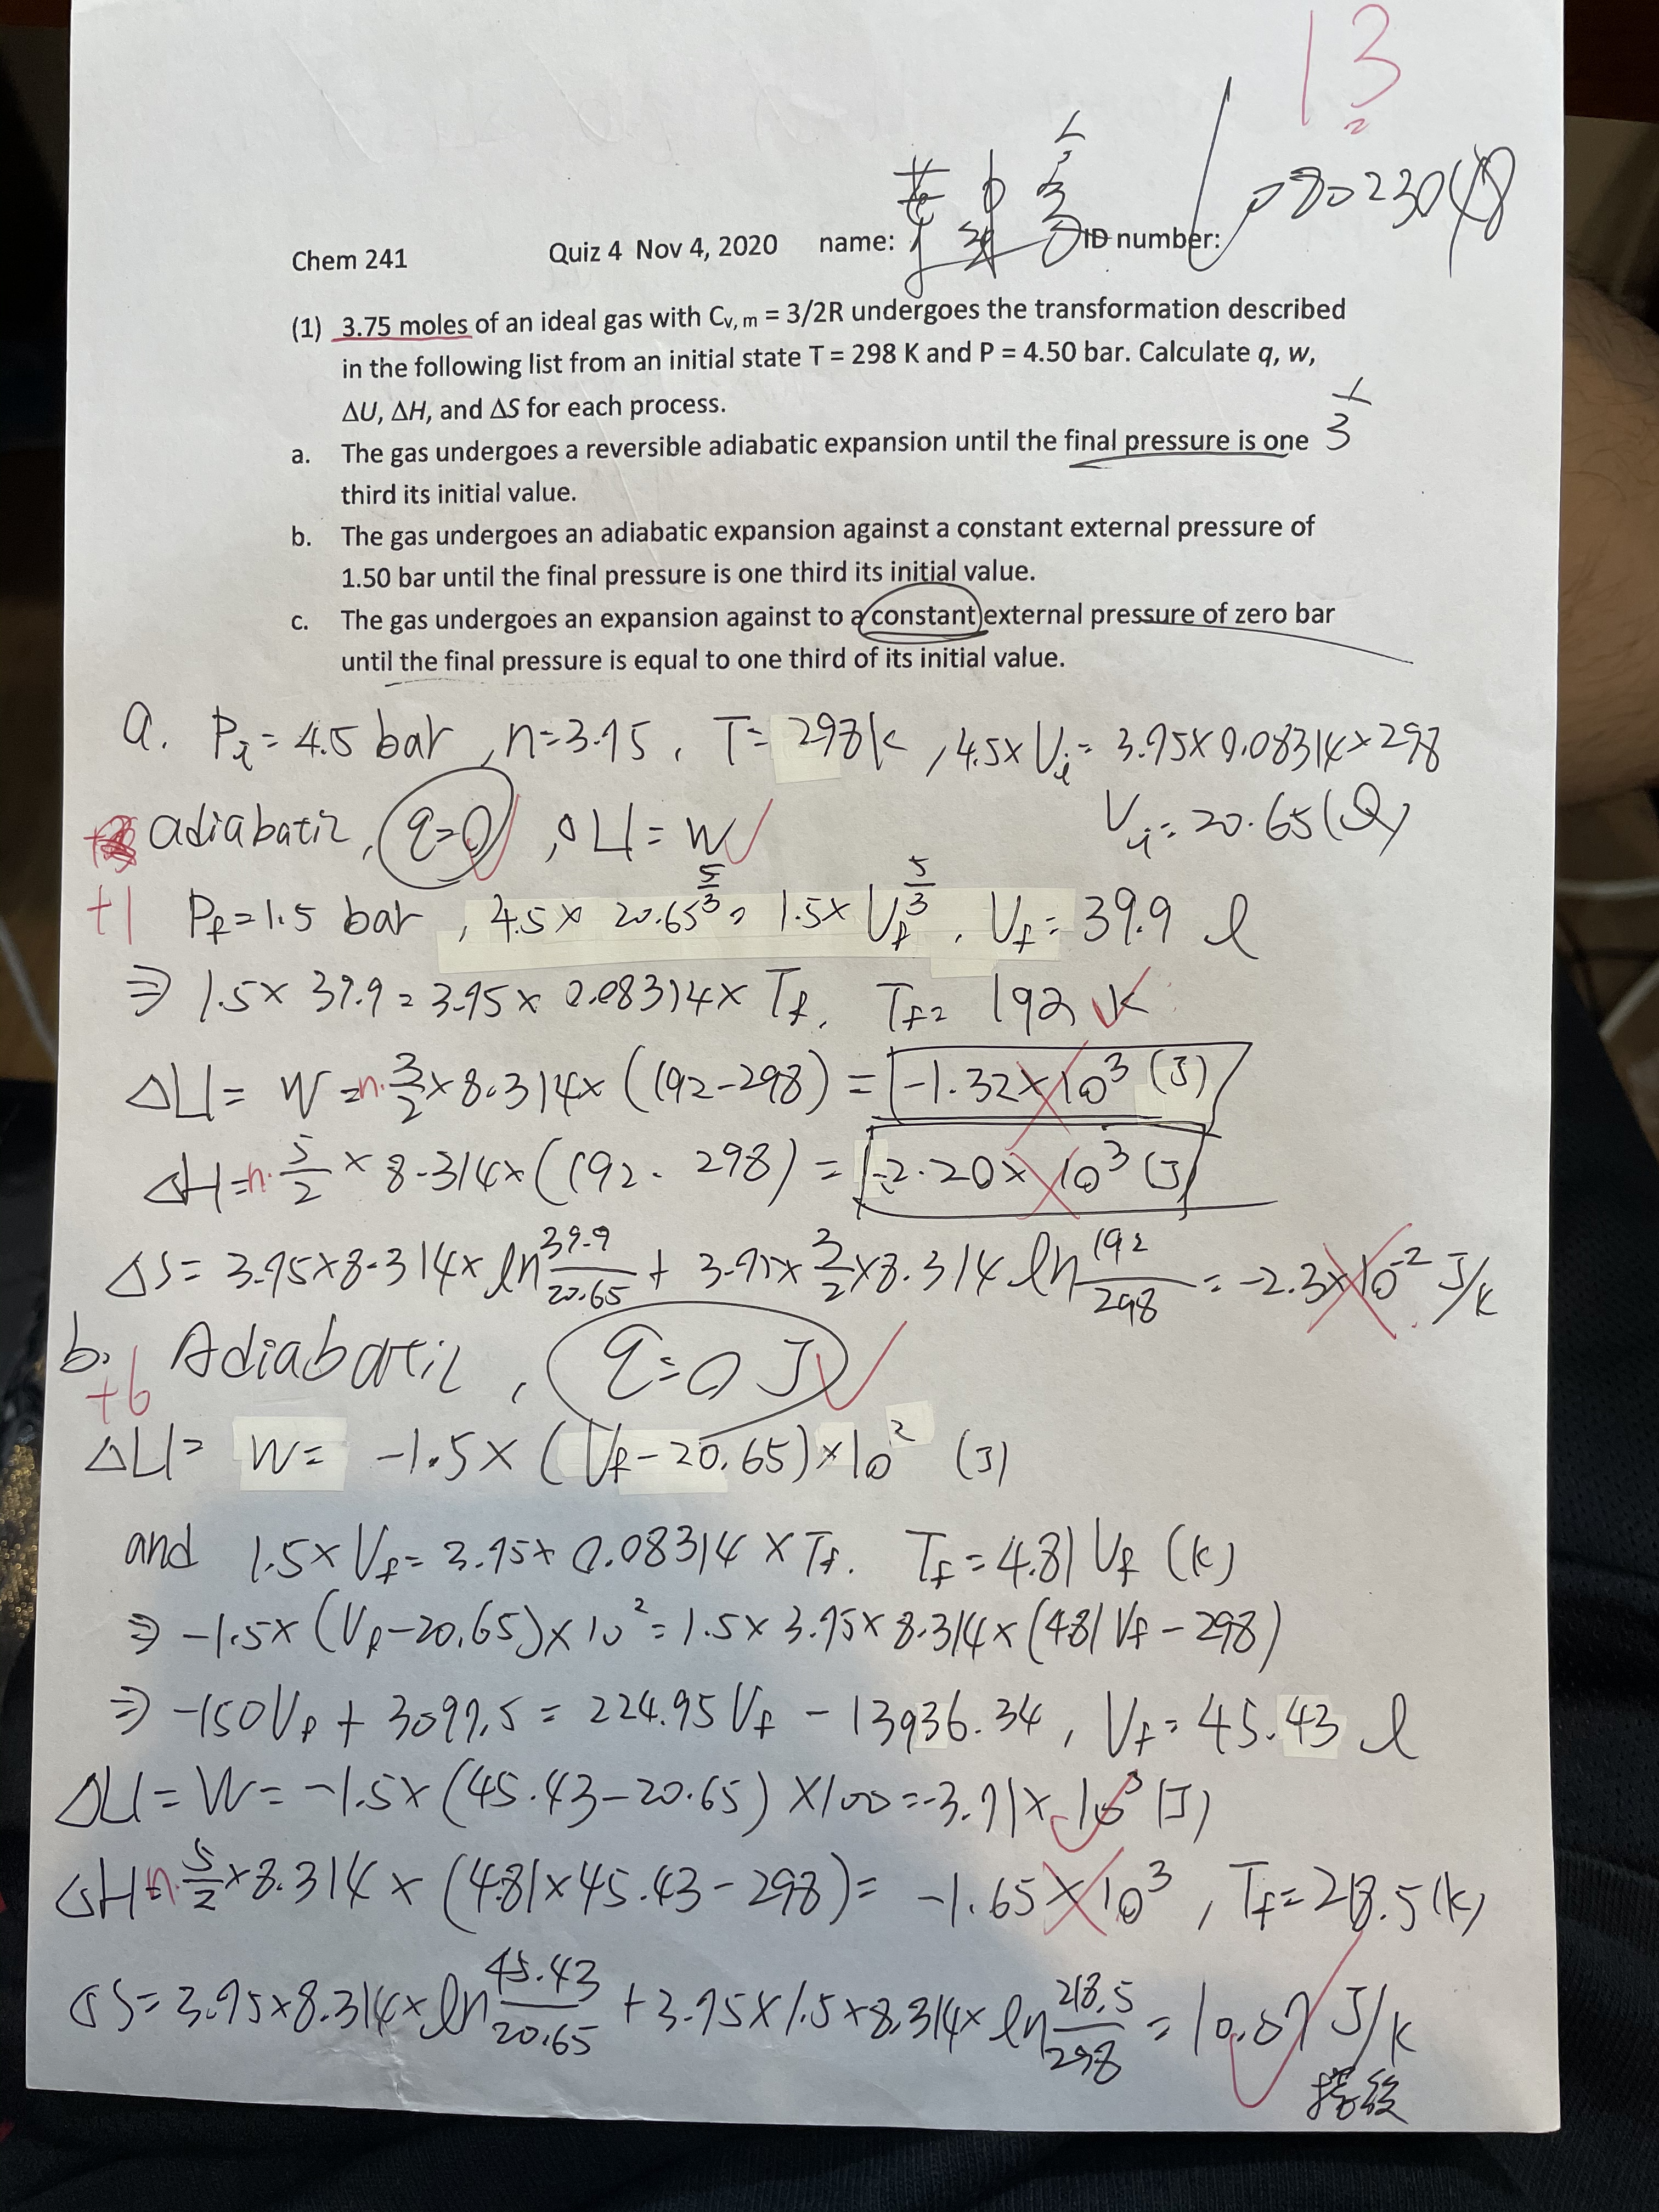 13
2
Chem 241 Quiz 4 Nov 4, 2020 name: ID number: 108023048
(1) 3.75 moles of an ideal gas with Cv, m = 3/2R undergoes the transformation described
in the following list from an initial state T = 298 K and P = 4.50 bar. Calculate q, w,
ΔU, ΔH, and ΔS for each process.
a. The gas undergoes a reversible adiabatic expansion until the final pressure is one 1/3
third its initial value.
b. The gas undergoes an adiabatic expansion against a constant external pressure of
1.50 bar until the final pressure is one third its initial value.
c. The gas undergoes an expansion against to a constant external pressure of zero bar
until the final pressure is equal to one third of its initial value.
a. Pi = 4.5 bar, n=3.75, T= 298k, 4.5×Vi= 3.75×0.08314×298
Vi = 20.65(l)
adiabatic, q=0, ΔU = W
+1 Pf=1.5 bar, 4.5×20.65^5/3 = 1.5×Vf^5/3, Vf= 39.9 l
⇒ 1.5×39.9 = 3.75×0.08314×Tf, Tf= 192 K
ΔU = W = n·3/2×8.314×(192-298) = -1.32×10³ (J)
ΔH = n·5/2×8.314×(192-298) = -2.20×10³ (J)
ΔS= 3.75×8.314×ln 39.9/20.65 + 3.75×3/2×8.314 ln 192/298 = -2.3×10⁻² J/K
b. Adiabatic, q=0 J
+6
ΔU= W= -1.5×(Vf-20.65)×10² (J)
and 1.5×Vf=3.75×0.08314×Tf. Tf=4.81Vf (K)
⇒ -1.5×(Vf-20.65)×10²=1.5×3.75×8.314×(4.81Vf-298)
⇒ -150Vf + 3097.5 = 224.95Vf - 13936.34, Vf= 45.43 l
ΔU= W= -1.5×(45.43-20.65)×100=-3.71×10³ (J)
ΔH= n·5/2×8.314×(4.81×45.43-298)= -1.65×10³, Tf=218.5(K)
ΔS= 3.75×8.314×ln 45.43/20.65 + 3.75×1.5×8.314×ln 218.5/298 = 10.07 J/K